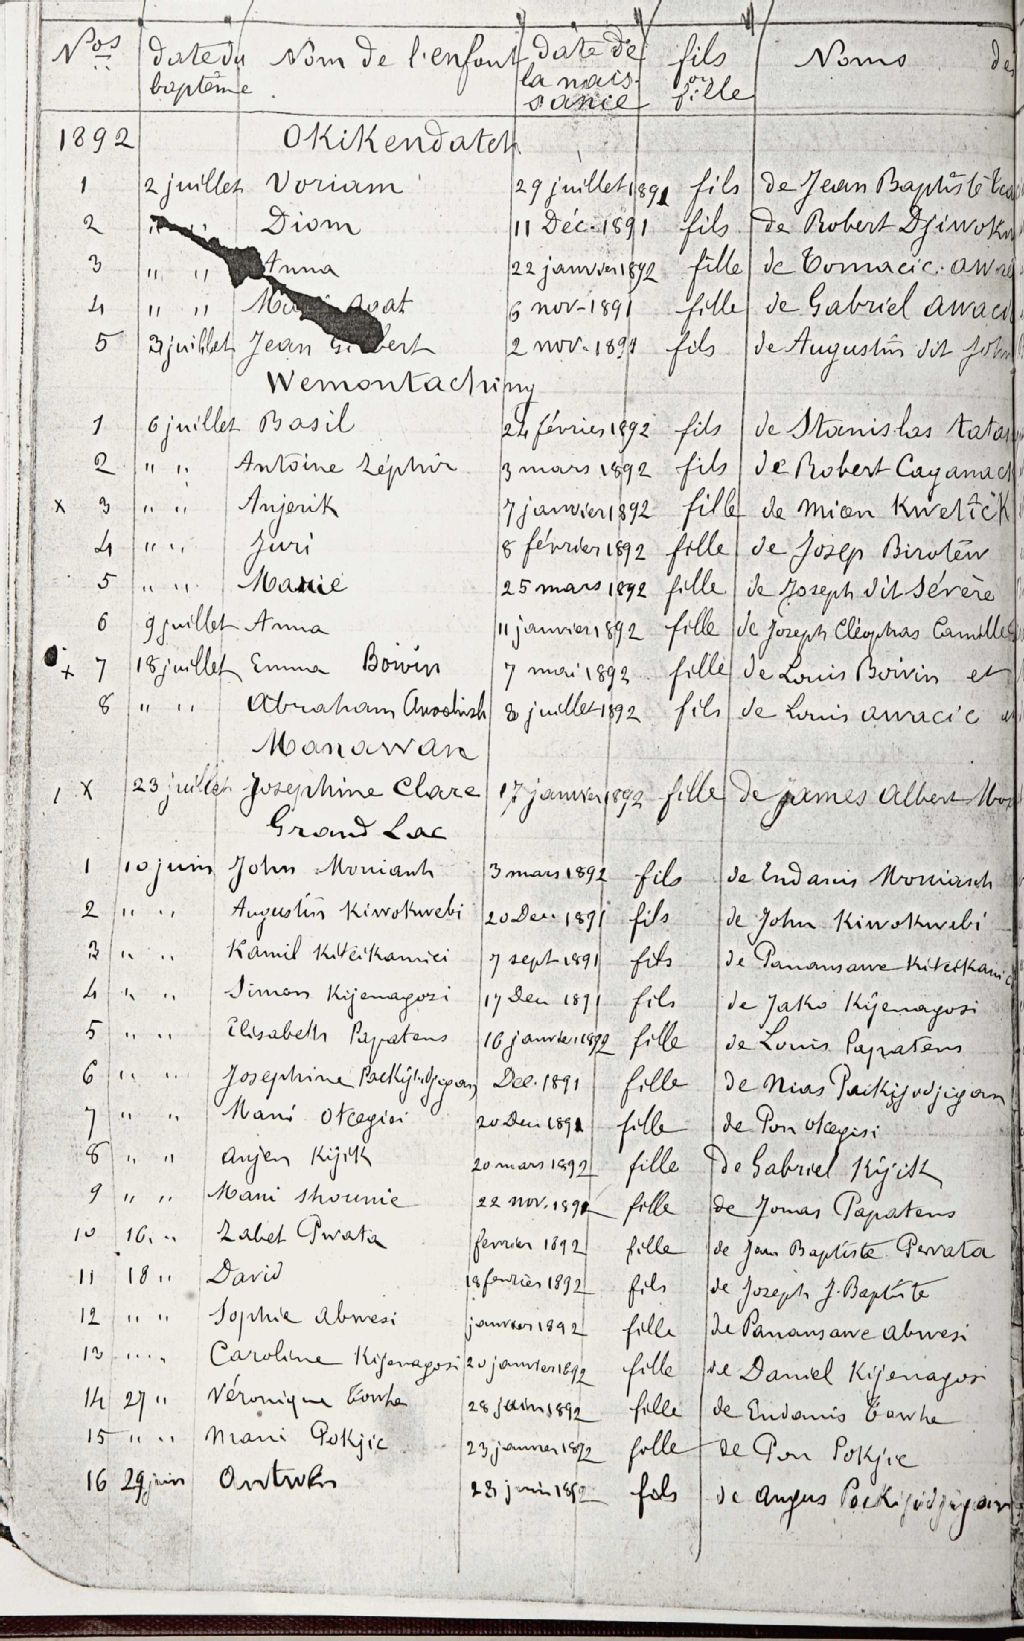 Nos date du baptême Nom de l'enfant date de la naissance fils ou fille Noms des
1892 Okikendatch
1 2 juillet Voriam 29 juillet 1891 fils de Jean Baptiste
2 " " Diom 11 Déc. 1891 fils de Robert Djiwoku
3 " " Anna 22 janvier 1892 fille de Tomacic
4 " " 6 nov. 1891 fille de Gabriel Awaci
5 3 juillet Jean 2 nov. 1891 fils de Augustin dit John
Wemontaching
1 6 juillet Basil 24 février 1892 fils de Stanislas
2 " " Antoine Zéphir 3 mars 1892 fils de Robert
x 3 " " Anjerik 7 janvier 1892 fille de Mian Kwetick
4 " " Juri 8 février 1892 fille de Josep Birotén
5 " " Marie 25 mars 1892 fille de Joseph dit Sévère
6 9 juillet Anna 11 janvier 1892 fille de Joseph Cléophas
x 7 18 juillet Emma Boivin 7 mai 1892 fille de Louis Boivin et
8 " " Abraham 8 juillet 1892 fils de Louis awacic
Manawan
1 x 23 juillet Josephine Clare 17 janvier 1892 fille de James Albert
Grand Lac
1 10 juin John 3 mars 1892 fils de Endanis
2 " " Augustin Kiwokwebi 20 Dec. 1891 fils de John Kiwokwebi
3 " " Kamil Kitcikamici 7 sept 1891 fils de Panansawe
4 " " Simon Kijenagosi 17 Dec 1891 fils de Jako Kijenagosi
5 " " Elisabeth Papatens 16 janvier 1892 fille de Louis Papatens
6 " " Josephine Dec. 1891 fille de Nias
7 " " Mani Otcegisi 20 Dec 1891 fille de Pon Otcegisi
8 " " Anjen Kijik 20 mars 1892 fille de Gabriel Kijik
9 " " Mani 22 nov. 1891 fille de Jonas Papatens
10 16 " " Zabet Pwata fevrier 1892 fille de Jean Baptiste
11 18 " David 18 fevrier 1892 fils de Joseph J. Baptiste
12 " " Sophie abwesi janvier 1892 fille de Panansawe abwesi
13 " " Caroline Kijenagosi 20 janvier 1892 fille de Daniel Kijenagosi
14 27 " Véronique 28 juin 1892 fille de Endanis
15 " " Mani Pokjic 23 janvier 1892 fille de Pon Pokjic
16 29 juin 28 juin 1892 fils de Angus